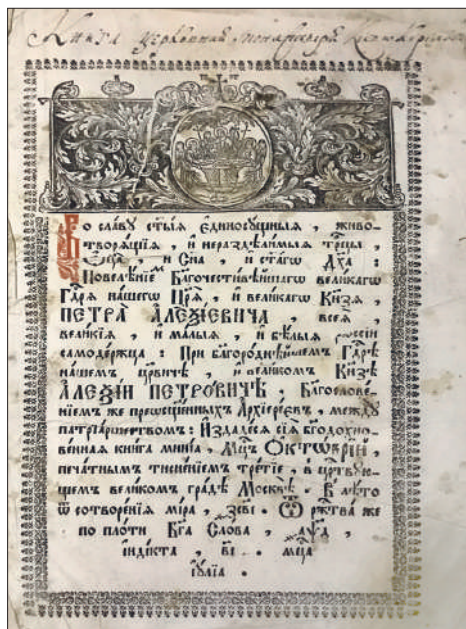 Книга церковная
Во славу ст҃ыѧ є҆диносущныѧ , живо-
творѧщїѧ , и҆ нераздѣлимыѧ трⷪ҇цы ,
Ѻ҆ц҃а , и҆ Сн҃а , и҆ ст҃агѡ Дх҃а :
Повелѣнїемъ Бл҃гочестивѣйшагѡ великагѡ
Гдⷭ҇рѧ нашегѡ Цр҃ѧ , и҆ великагѡ Кн҃зѧ ,
ПЕТРА̀ АЛЕѮІ́ЕВИЧА , всеѧ̀ ,
великїѧ , и҆ малыѧ , и҆ бѣлыѧ рѡссїи
самодержца : При бл҃городнѣйшемъ Гдⷭ҇рѣ
нашемъ цр҃вичѣ , и҆ великомъ Кн҃зѣ
АЛЕѮІ́И ПЕТРО́ВИЧѢ , Бл҃гослове-
нїемъ же преѡсщ҃енныхъ А҆рхїереєвъ , между
патрїаршествомъ : И҆здадесѧ сїѧ бг҃одохно-
венная книга минїа , Мцⷭ҇ъ ОКТѠ́ВРІЙ ,
печатнымъ тисненїемъ третїе , в цр҃твую-
щемъ великомъ градѣ Москвѣ . В лѣто
ѿ сотворенїѧ мїра , ҂зсві . Ѿ рж҃тва же
по плоти Бг҃а Слова , ҂аѱд ,
і҆ндікта , ві . мцⷭ҇а
і҆улїа .